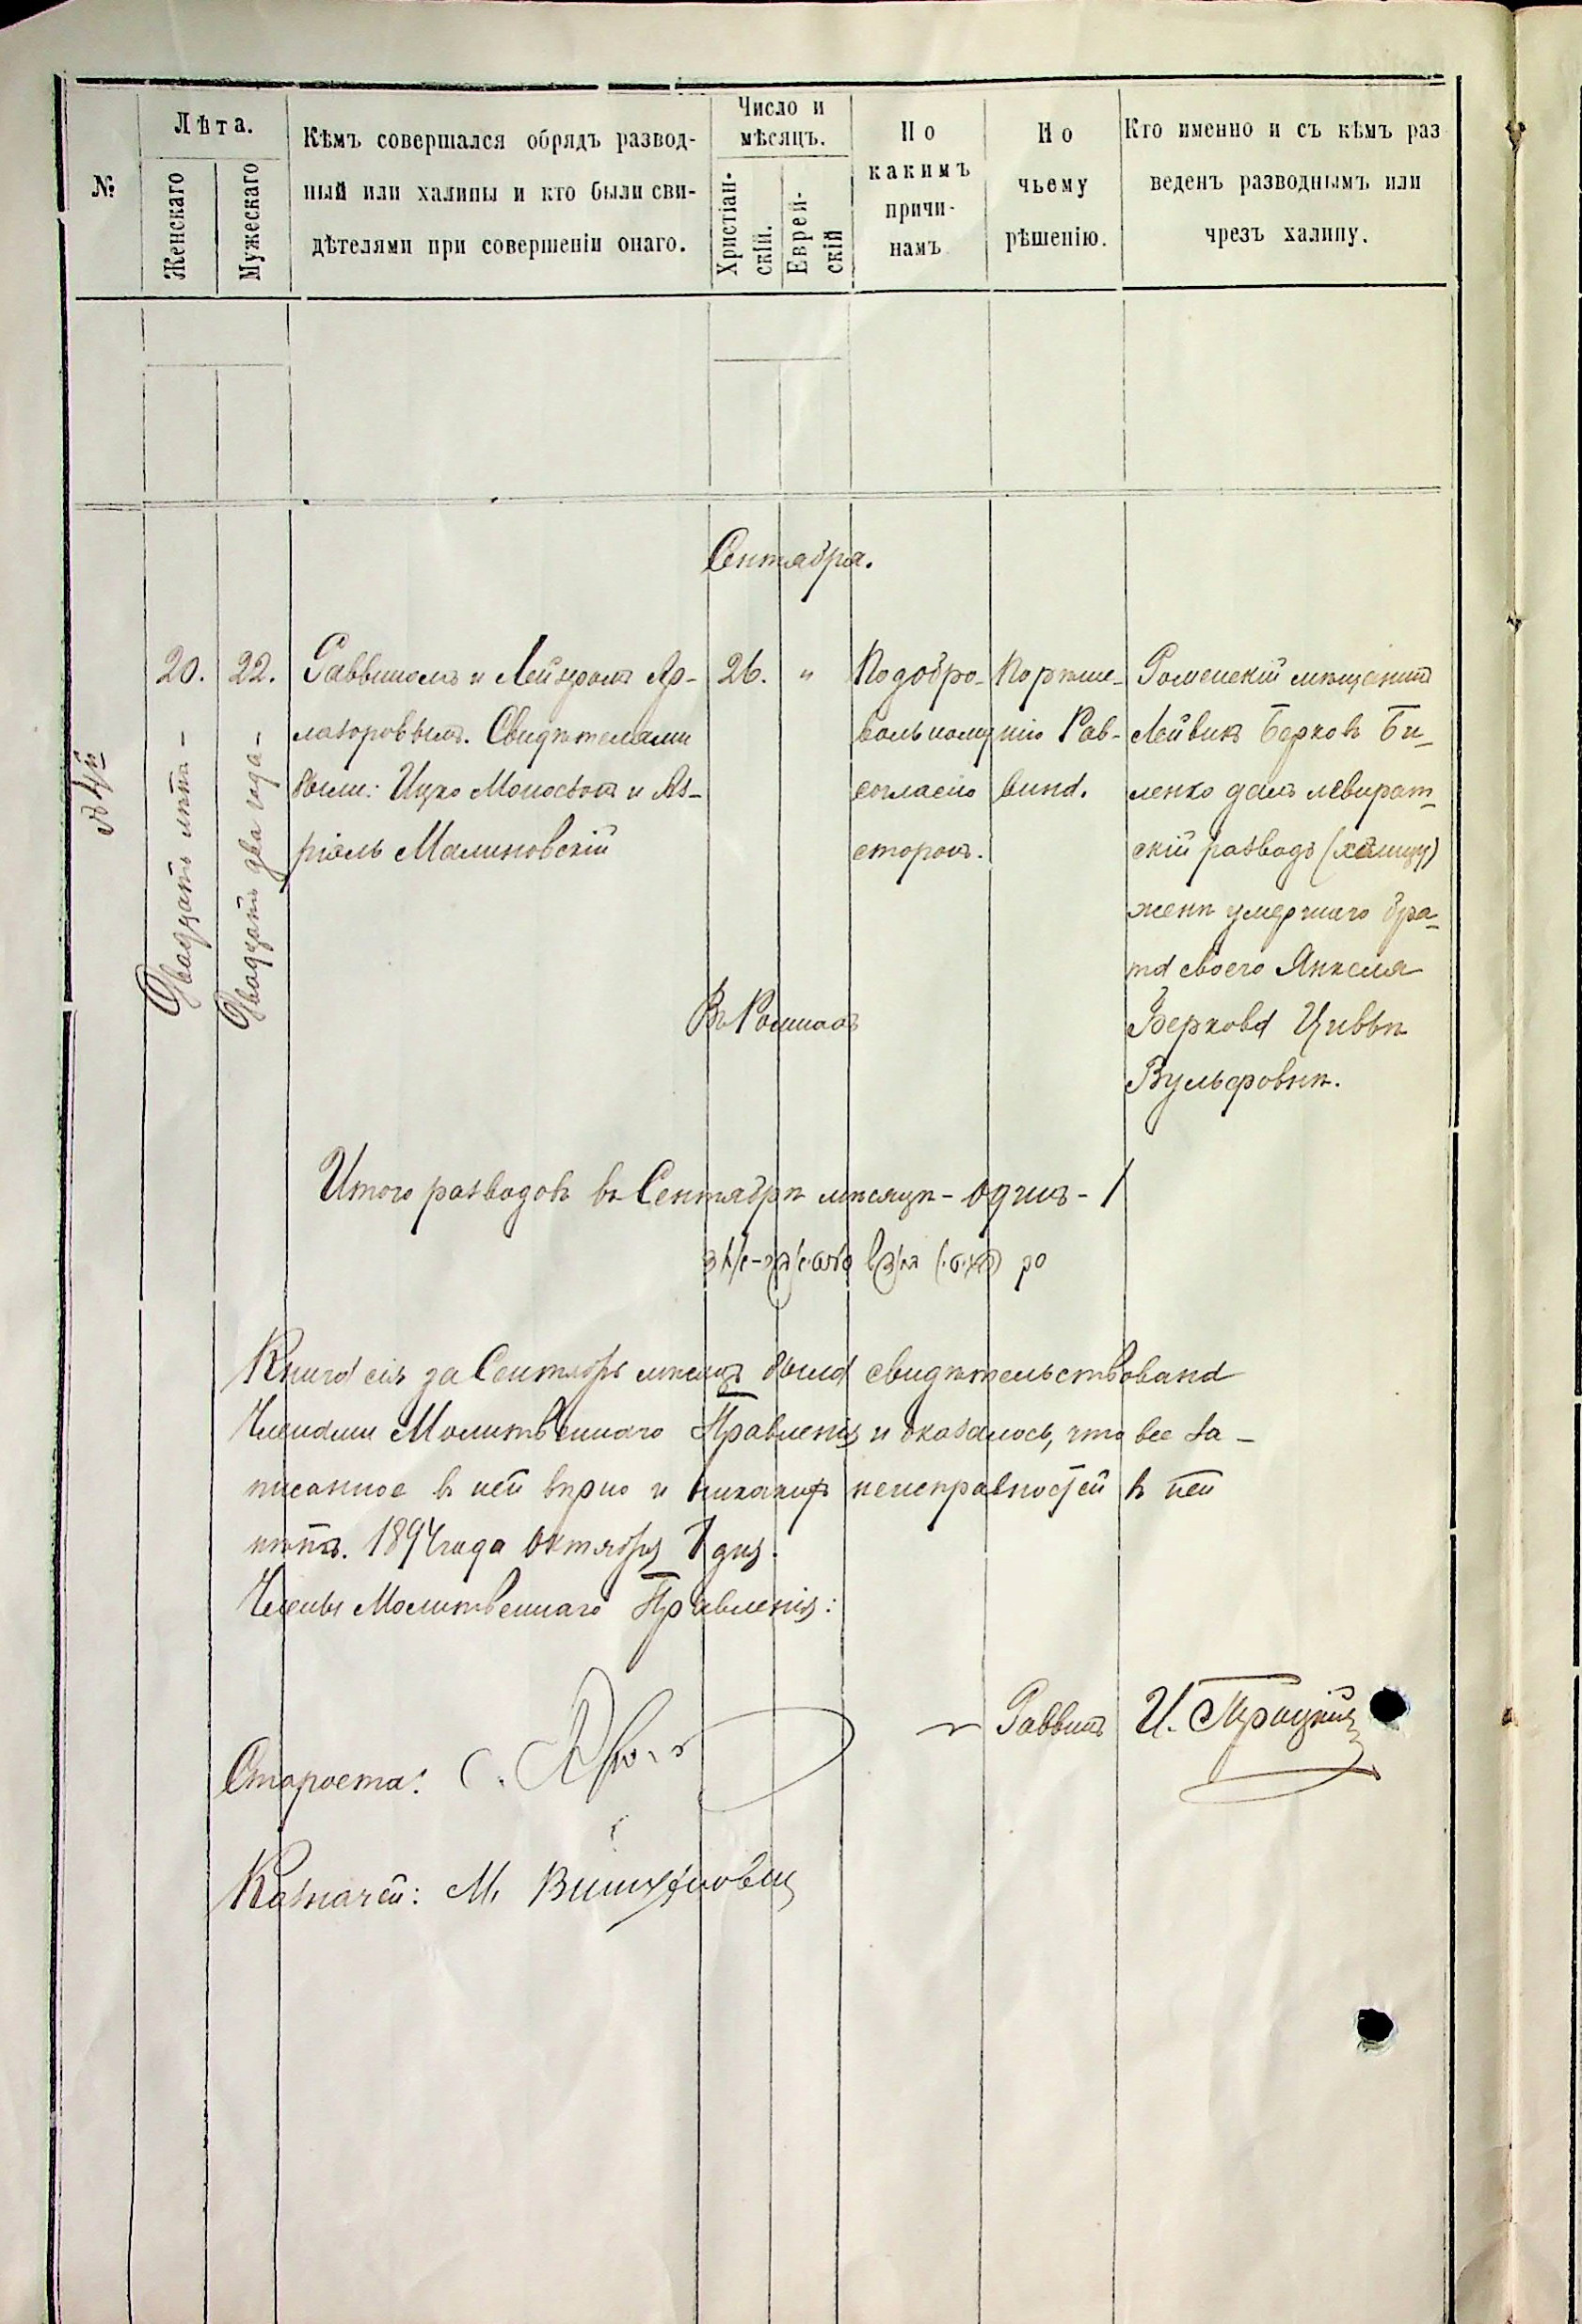 №
Лѣта.
Женскаго
Мужескаго
Кѣмъ совершался обрядъ развод-
ный или халицы и кто были сви-
дѣтелями при совершеніи онаго.
Число и
мѣсяцъ.
Христіан-
скій.
Еврей-
скій
По
какимъ
причи-
намъ
По
чьему
рѣшенію.
Кто именно и съ кѣмъ раз
веденъ разводнымъ или
чрезъ халицу.
Сентября.
№ 4й
20.
Двадцать лѣтъ -
22.
Двадцать два года -
Раввиномъ и Лейзеромъ
Свидѣтелями
были: Ицко и Аз-
ріель Малиновскій
26.
"
По добро-
вольному
согласію
сторонъ.
По рѣше-
нію Рав-
вина.
Роменскій мѣщанинъ
Лейвикъ Берковъ Би-
ленко далъ левират-
скій разводъ (халицу)
женѣ умершаго бра-
та своего Янкеля
Беркова Цивьѣ
Вульфовнѣ.
Въ Ромнахъ
Итого разводовъ въ Сентябрѣ мѣсяцѣ - одинъ - 1
Книга сія за Сентябрь мѣсяцъ была свидѣтельствована
Членами Молитвеннаго Правленія и оказалось, что все за-
писанное въ ней вѣрно и никакихъ неисправностей въ ней
нѣтъ. 1894 года Октября 1 дня.
Члены Молитвеннаго Правленія:
Раввинъ И. Троцкій
Староста: С.
Казначей: М.